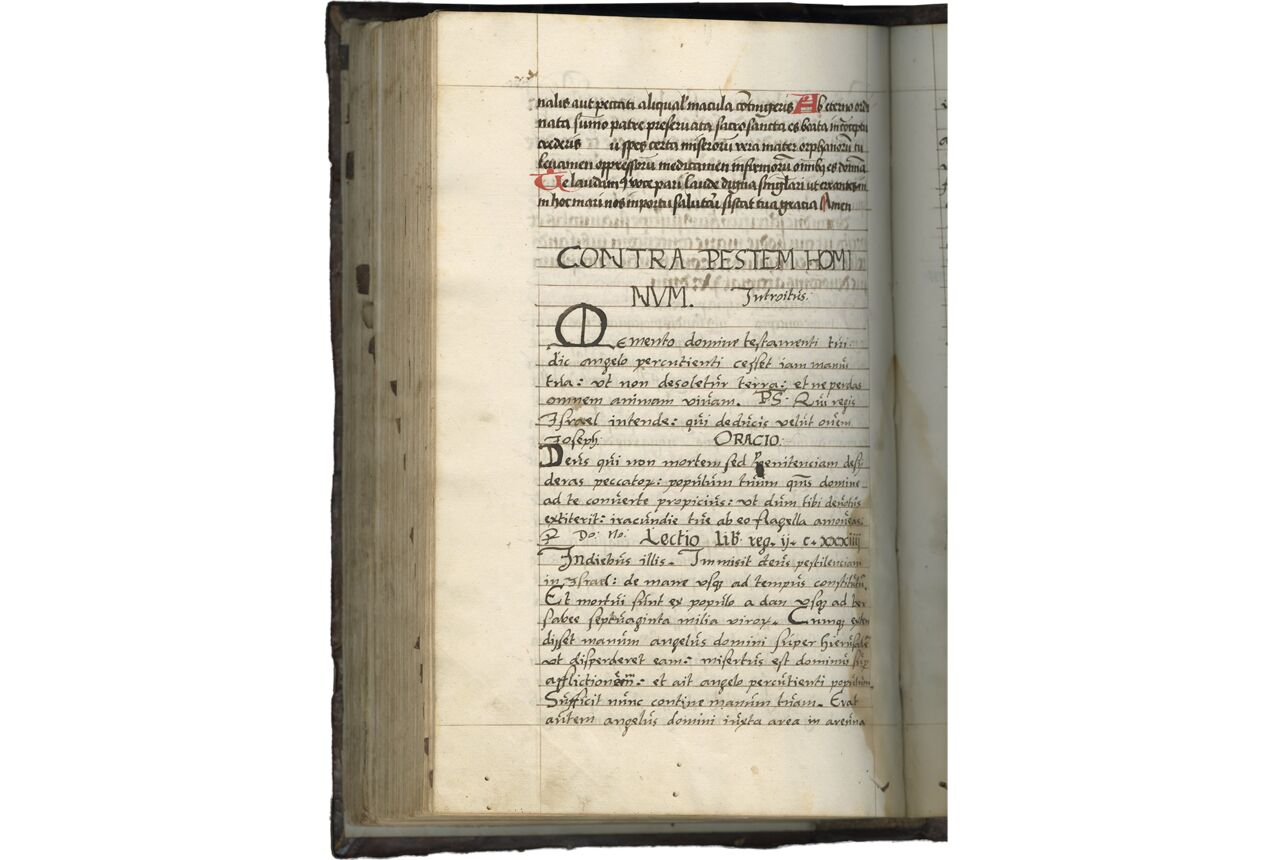 nalis aut peccati aliqual' macula cōtingeris Ab eterno ordi
nata sūmo patre preseruata sacrosancta es beata in cōceptu
crederis u spes certa miserorū vera mater orphanorū tu
leuamen oppressorū medicamen infirmorū omībꝫ es
Te laudam' voce pari laude digna singlari ut errantes in
in hoc mari nos in portu salutaū sistat tua gracia Amen
CONTRA PESTEM HOMI
NVM. Introitus:
Memento domine testamenti tui:
dic angelo percutienti cesset iam manū
tua: vt non desoletur terra: et ne perdas
omnem animam viuam. PS: Qui regis
Israel intende: qui deducis velut ouem
Joseph: ORACIO:
Deus qui non mortem sed penitenciam desi
deras peccatoꝝ: populum tuum qm̄s domine
ad te conuerte propicius: vt dum tibi deuotus
extiterit: iracundie tue ab eo flagella amoueas:
P Do: No: Lectio lib. reg. ij. c. xxxiiij
In diebus illis. Immisit deus pestilenciam
in Israel: de mane vsqꝫ ad tempus constitutū.
Et mortui sunt ex populo a dan vsqꝫ ad ber
sabee septuaginta milia viroꝝ. Cumqꝫ exten
disset manum angelus domini super hierusalē
vt disperderet eam: misertus est dominus sup
afflictionem: et ait angelo percutienti populum.
Sufficit nunc contine manum tuam. Erat
autem angelus domini iuxta area in areuna